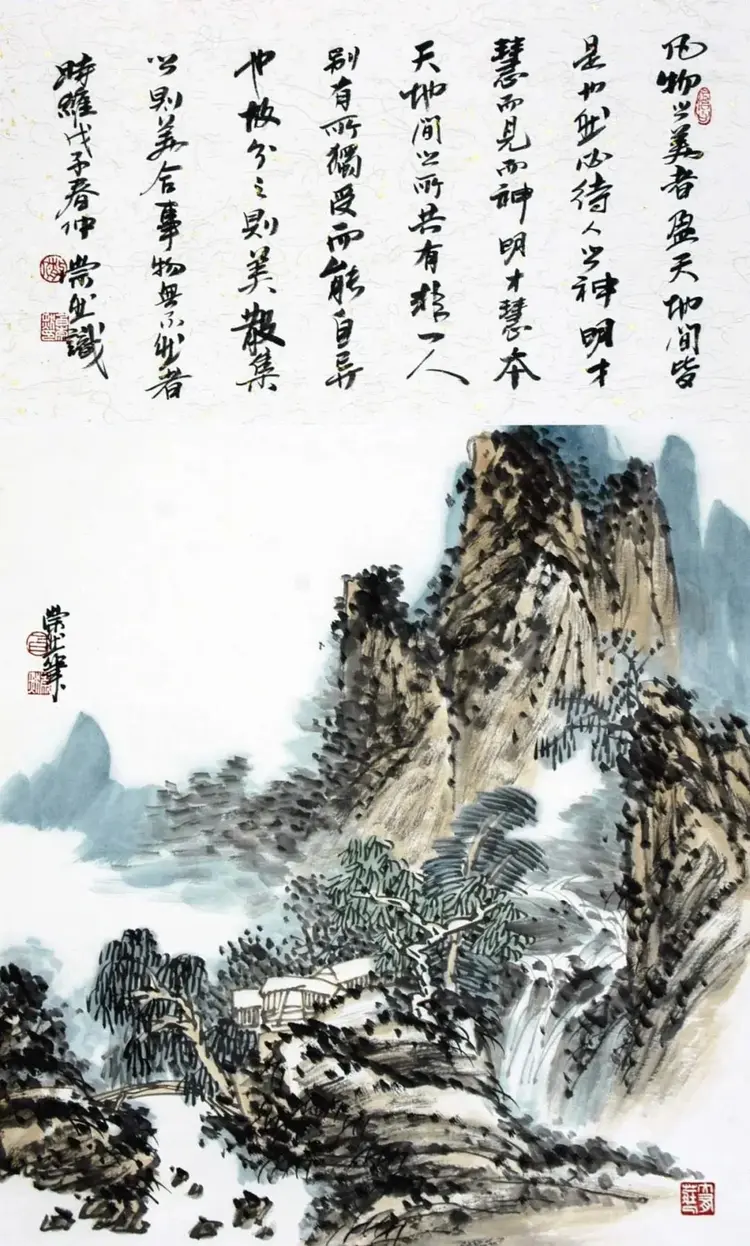 凡物之美者盈天地间皆
是也然必待人之神明才
慧而见而神明才慧本
天地間之所共有非一人
别有所獨受而能自异
也故分之則美散集
之則美合事物無不然者
時維戊子春仲 崇然識
崇然筆